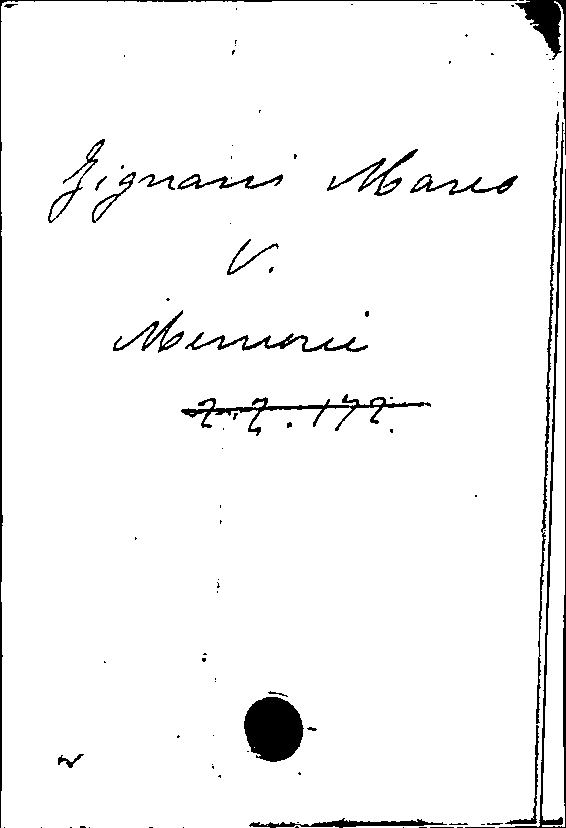 Zignani Marco
V.
Memorie
2.2.172.